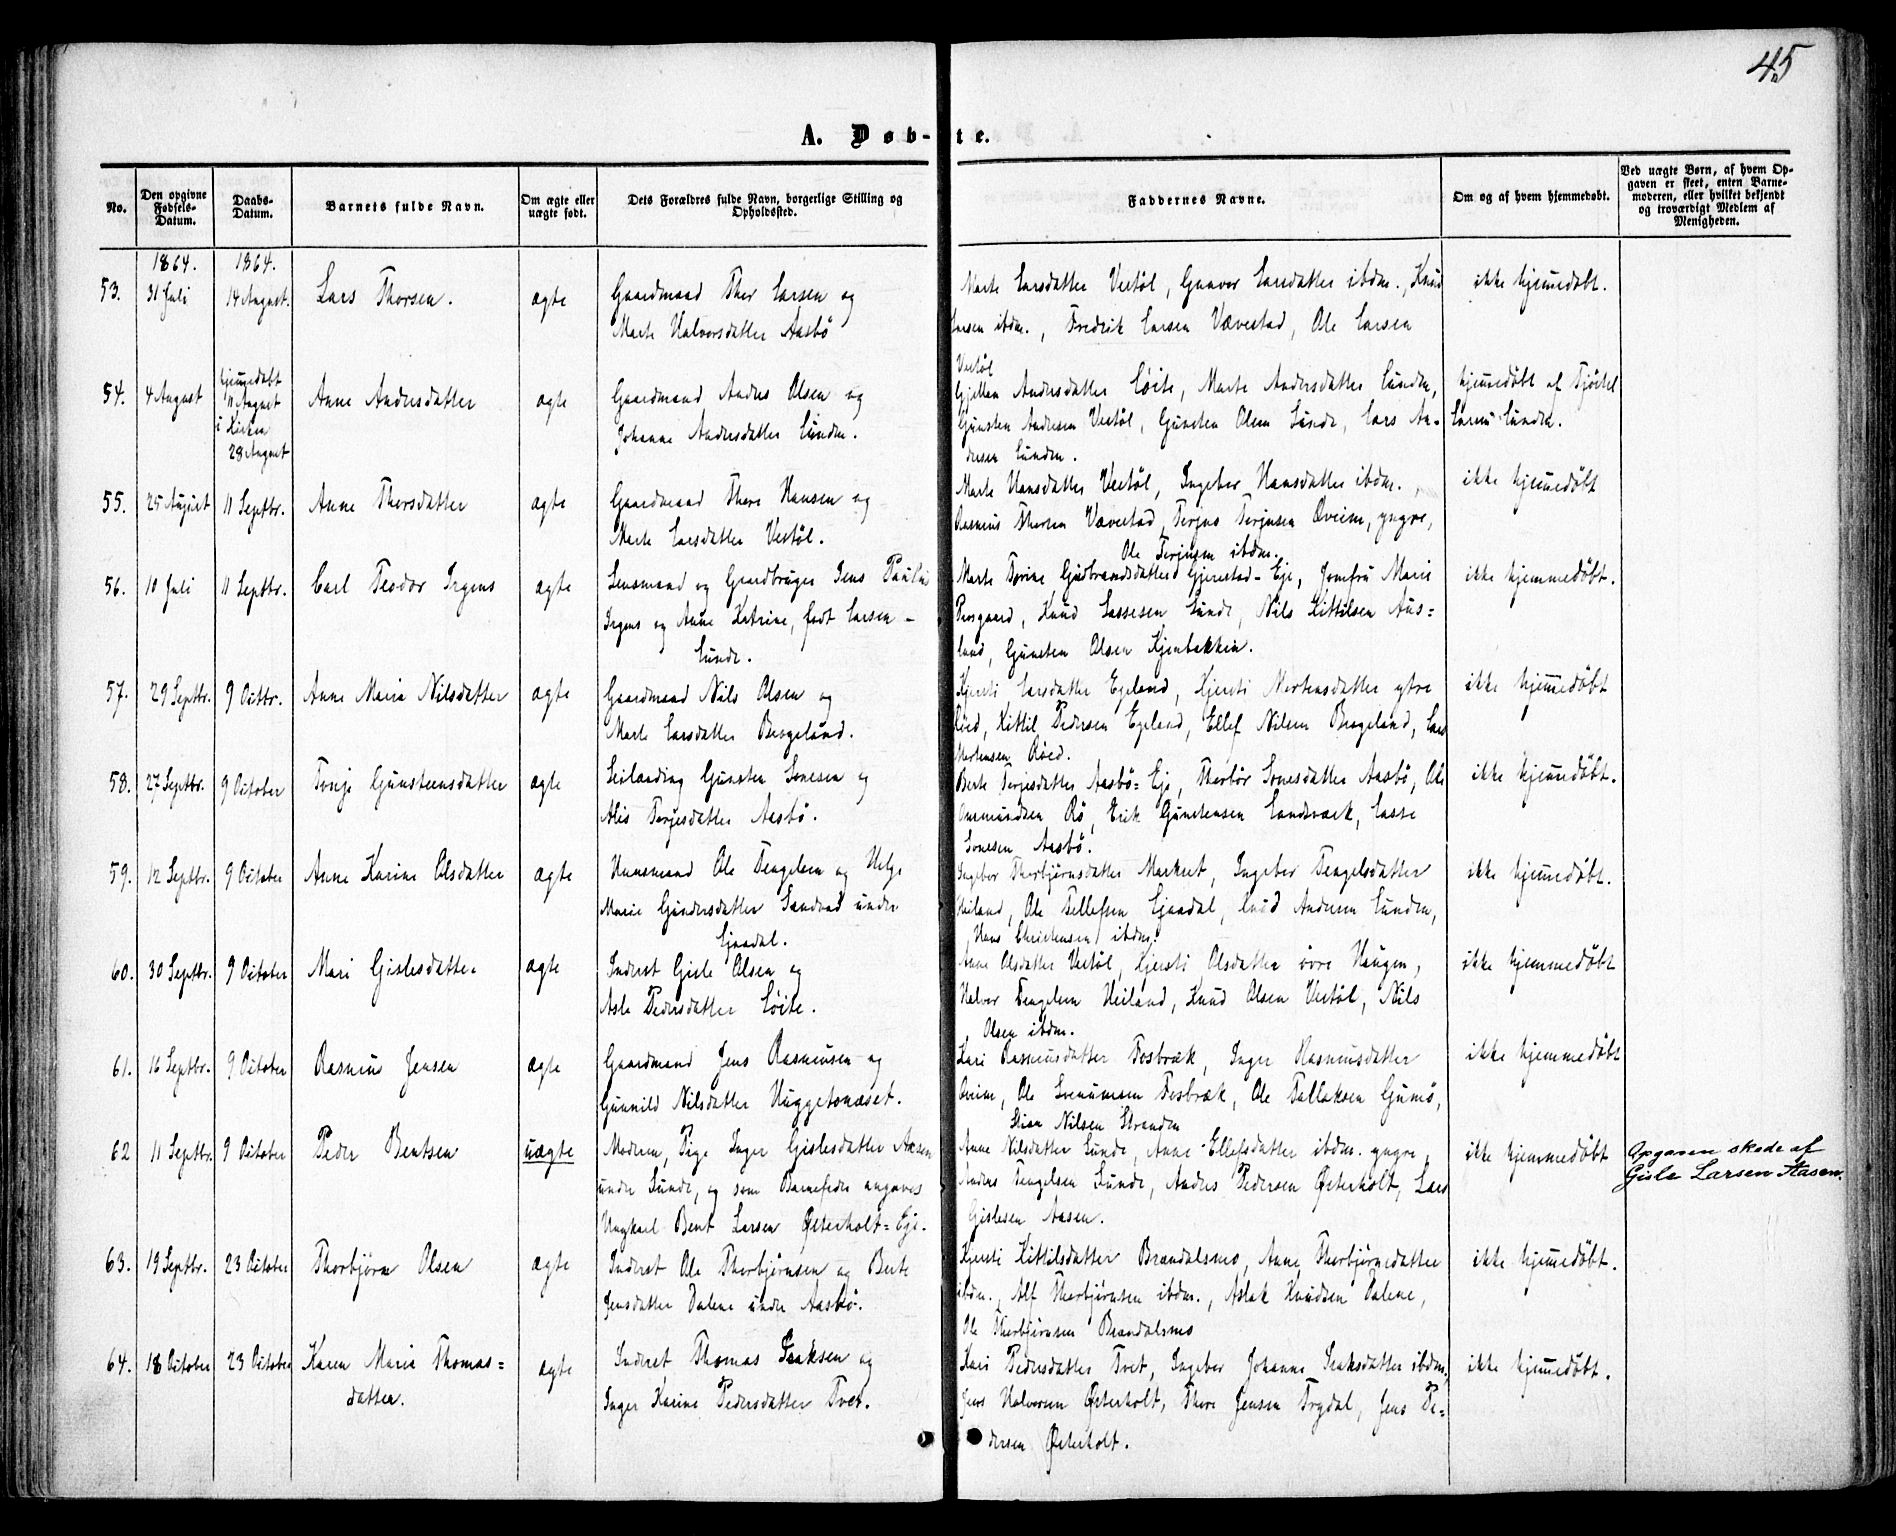 45
A. Døb-te.
No.
Den opgivne Fødsels-Datum.
Daabs-Datum.
Barnets fulde Navn.
Om ægte eller uægte født.
Dets Forældres fulde Navn, borgerlige Stilling og Opholdssted.
Faddernes Navne.
Om og af hvem hjemmedøbt.
Ved uægte Børn, af hvem Opgaven er skeet, enten Barnemoderen, eller hvilket bekjendt og troværdigt Medlem af Menigheden.
1864. 1864.
53. 31 Juli 14 August. Lars Thorsen. ægte
Gaardmand Thor Larsen og
Marte Halvorsdatter Aasbö
Marte Larsdatter Vestöl, Gunvor Larsdatter ibdm., Knud
Larsen ibdm., Fredrik Larsen Vævestad, Ole Larsen
Vestöl
ikke hjemmedøbt.
54. 4 August hjemmedøbt
11 August
i Kirken
28 August
Anne Andersdatter ægte
Gaardmand Anders Olsen og
Johanne Andersdatter Lunden.
Andersdatter Löite, Marte Andersdatter Lunden,
Gunsten Andersen Vestöl, Gunsten Olsen Lunde, Lars An-
dersen Lunden.
hjemmedøbt af Tjöstel
Larsen Lunden.
55. 25 August 11 Septbr. Anne Thorsdatter ægte
Gaardmand Thore Hansen og
Marte Larsdatter Vestöl.
Marte Hansdatter Vestöl, Ingebor Hansdatter ibdm.,
Rasmus Thorsen Vævestad, Terjus Terjusen Qveim, yngre,
Ole Terjusen ibdm.
ikke hjemmedøbt
56. 10 Juli 11 Septbr. Carl Teodor Irgens ægte
Lensmand og Gaardbruger Jens Paulin
Irgens og Anne Katrine, født Larsen -
Lunde.
Marte Torine Gudbrandsdatter Gjerestad-Eje, Jomfru Marie
Knud Lassesen Lunde, Nils Kittilsen Aus=
land, Gunsten Olsen Kjenbakken.
ikke hjemmedøbt.
57. 29 Septbr. 9 Octbr. Anne Maria Nilsdatter ægte
Gaardmand Nils Olsen og
Marte Larsdatter Brageland.
Kjersti Larsdatter Egeland, Kjersti Mortensdatter ytre
Röed, Kittil Pedersen Egeland, Ellef Nilsen Brageland, Lars
Mortensen Röed.
ikke hjemmedøbt
58. 27 Septbr. 9 October Gunsteensdatter ægte
Gunsten Sonesen og
Alis Terjesdatter Aasbö.
Berte Terjesdatter Aasbö=Eje, Thorbör Sonesdatter Aasbö, Ole
Ommundsen Rö, Erik Gunstensen Landsværk, Lasse
Sonesen Aasbö.
ikke hjemmedøbt.
59. 12 Septbr. 9 October Anne Karine Olsdatter ægte
Huusmand Ole Tengelsen og Helge
Marie Gundersdatter Sandvad under
Ejaadal.
Ingebor Thorbjörnsdatter Markset, Ingebor Tengelsdatter
Heiland, Ole Tellefsen Ejaadal, Knud Andersen Lunden,
Hans Christensen ibdm.
ikke hjemmedøbt.
60. 30 Septbr. 9 October Mari Gislesdatter ægte
Inderst Gisle Olsen og
Asle Pedersdatter Löite.
Anne Olsdatter Vestöl, Kjersti Olsdatter övre Haugen,
Halvor Tengelsen Heiland, Knud Olsen Vestöl, Nils
Olsen ibdm.
ikke hjemmedøbt
61. 16 Septbr. 9 October Rasmus Jensen ægte
Gaardmand Jens Rasmusen og
Gunnild Nilsdatter Huggetonæset.
Kari Rasmusdatter Fosbræk, Inger Rasmusdatter
Qveim, Ole Svenumsen Fosbræk, Ole Tallaksen Gumö,
Stian Nilsen Stranden
ikke hjemmedøbt
62 11 Septbr. 9 October Peder Bentsen uægte
Moderen, Pige Inger Gislesdatter Aasen
under Lunde, og som Barnefader angaves
Ungkarl Bent Larsen Østerholt=Eje.
Anne Nilsdatter Lunde, Anne Ellefsdatter ibdm. yngre,
Anders Tengelsen Lunde, Anders Pedersen Østerholt, Lars
Gislesen Aasen.
ikke hjemmedøbt
Opgaven skede af
Gisle Larsen Aasen.
63. 19 Septbr. 23 October Thorbjörn Olsen ægte
Inderst Ole Thorbjörnsen og Berte
Jensdatter Dalene under Aasbö.
Kjersti Kittilsdatter Brændalsmo, Anne Thorbjörnsdatter
ibdm., Alf Thorbjörnsen ibdm., Aslak Knudsen Dalene,
Ole Thorbjörnsen Brændalsmo
ikke hjemmedøbt.
64. 18 October 23 October Karen Maria Thomas=
datter. ægte
Inderst Thomas Isaksen og
Inger Karine Pedersdatter Tvet.
Kari Pedersdatter Tvet, Ingebor Johanne Isaksdatter ibdm.
Jens Halvorsen Østerholt, Thore Jensen Trydal, Jens Pe=
dersen Østerholt.
ikke hjemmedøbt.